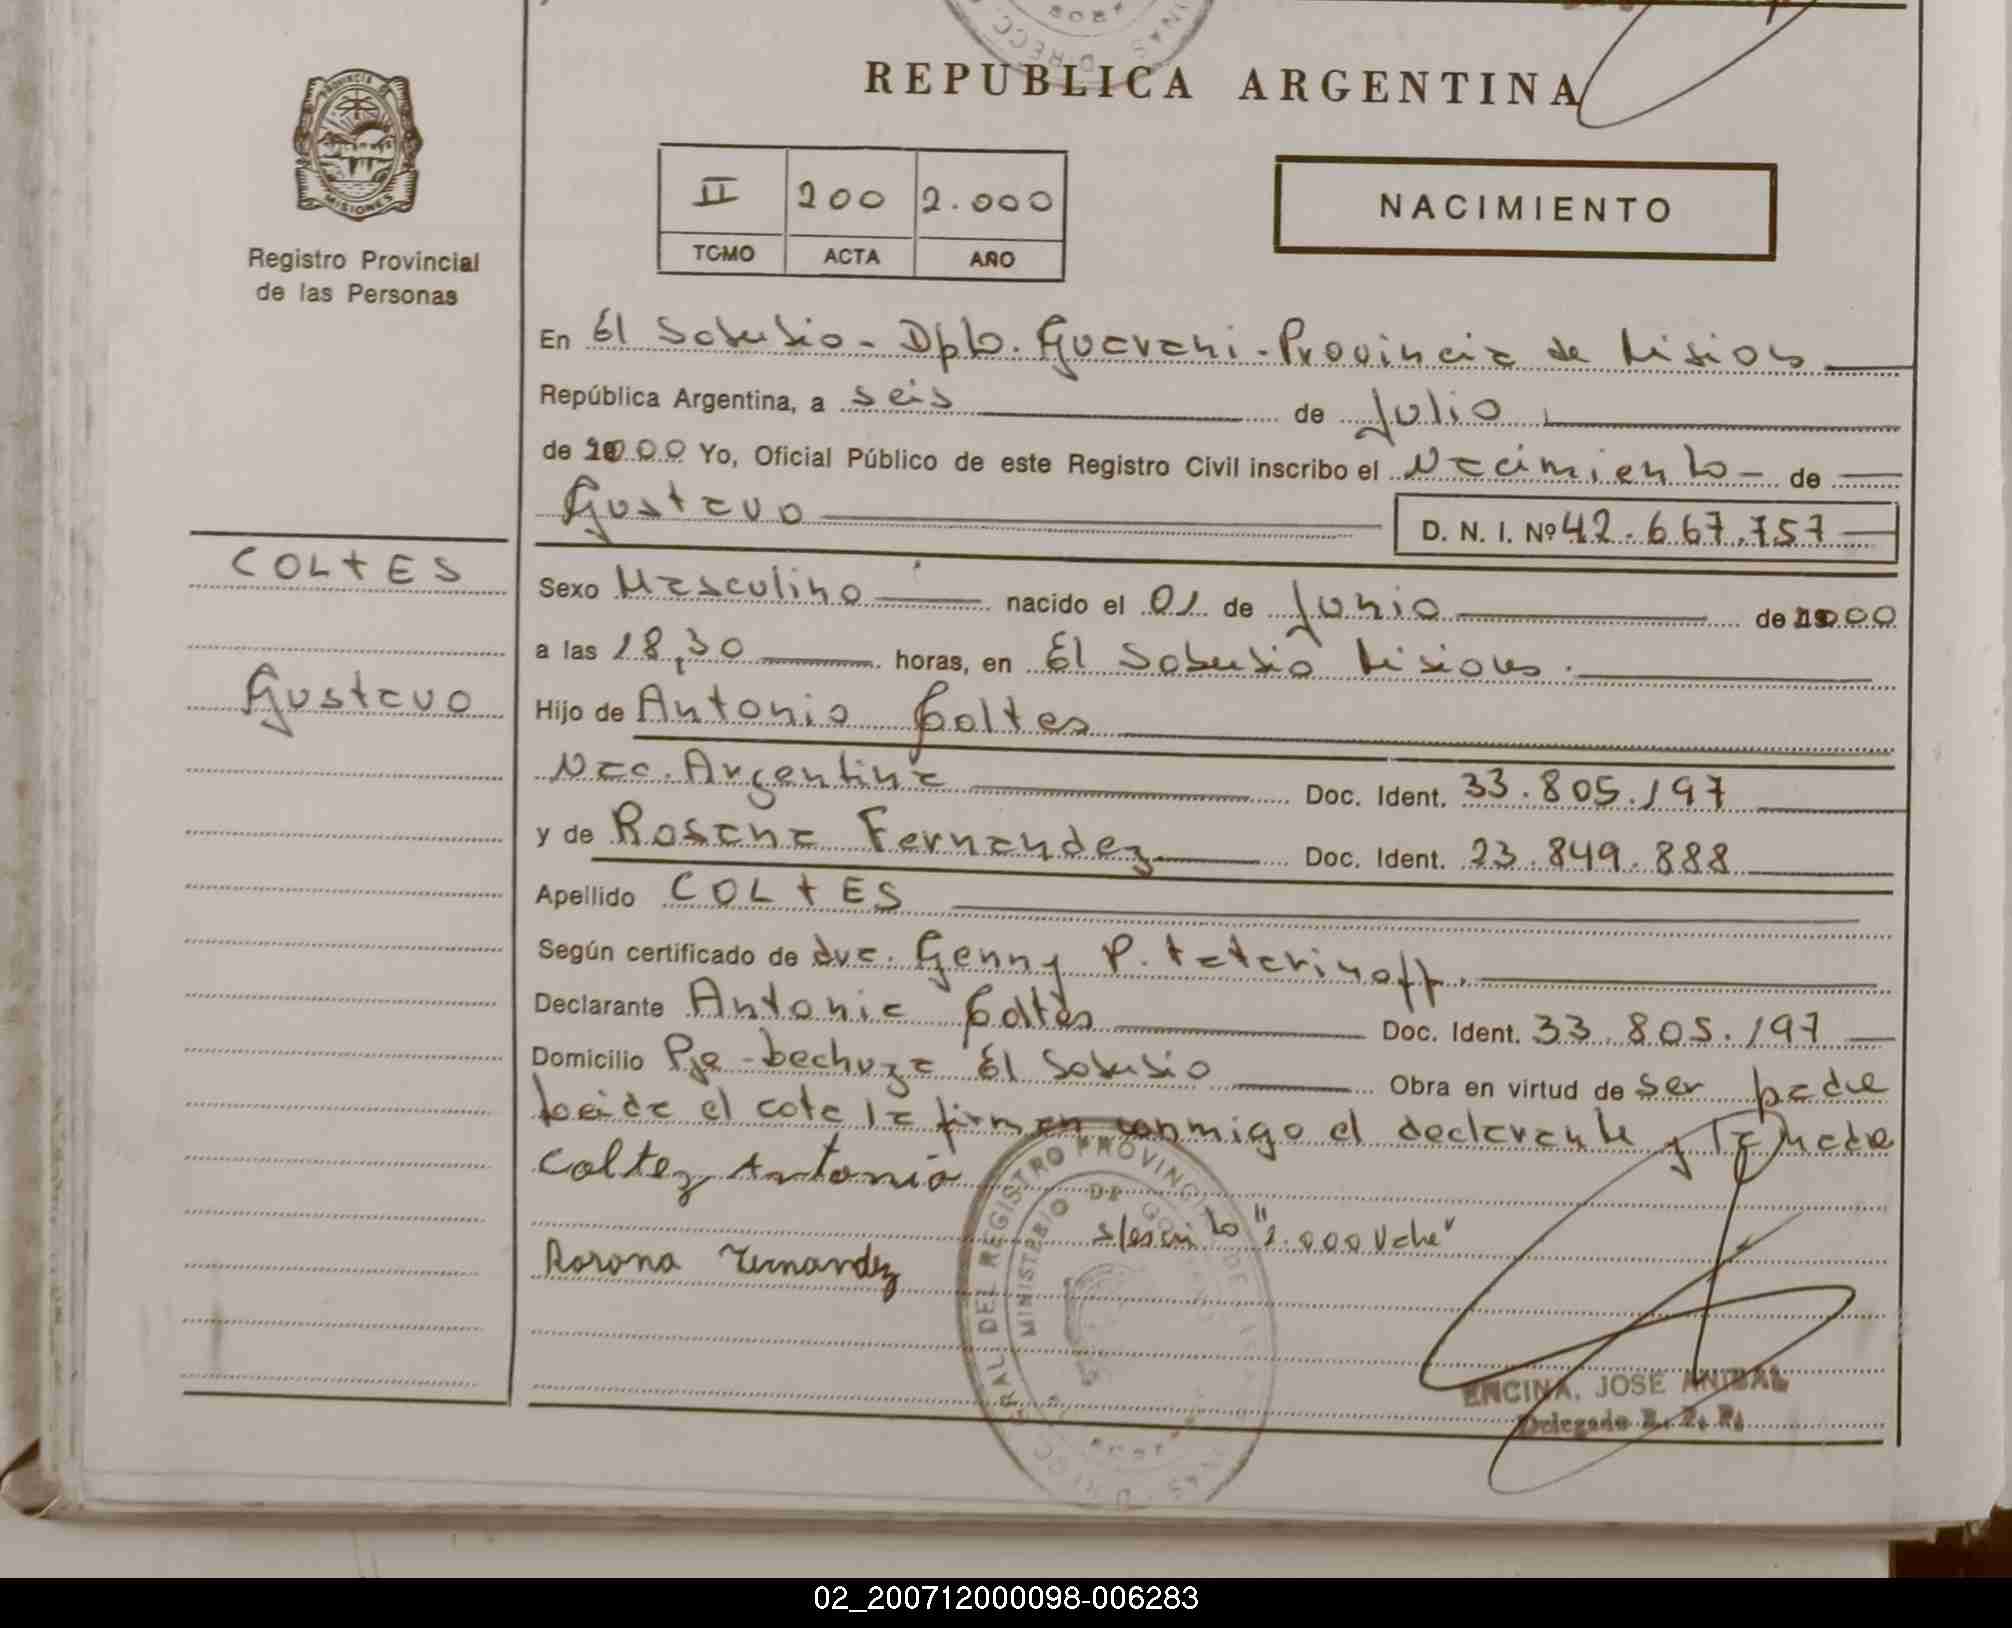 REPUBLICA ARGENTINA
PROVINCIA DE
MISIONES
Registro Provincial
de las Personas
II 200 2.000
TOMO ACTA AÑO
NACIMIENTO
En El Soberbio - Dpto. Guarani - Provincia de Misiones
República Argentina, a seis de Julio
de 2000 Yo, Oficial Público de este Registro Civil inscribo el Nacimiento de
Gustavo D. N. I. Nº 42.667.757
COLTES
Gustavo
Sexo Masculino nacido el 01 de Junio de 2000
a las 18,30 horas, en El Soberbio Misiones.
Hijo de Antonio Coltes
Nac. Argentina Doc. Ident. 33.805.197
y de Rosana Fernandez Doc. Ident. 23.849.888
Apellido COLTES
Según certificado de dra. Genny P. Tatarinoff.
Declarante Antonio Coltes Doc. Ident. 33.805.197
Domicilio Pje - Lechuza El Soberbio Obra en virtud de ser padre
Leida el acta la firman conmigo el declarante y la madre
Coltez Antonio
s/escrito "2.000 Vale"
Rosana Fernandez
REGISTRO PROVINCIAL
MINISTERIO DE GO
ENCINA, JOSE ANIBAL
Delegado R. P. P.
02_200712000098-006283